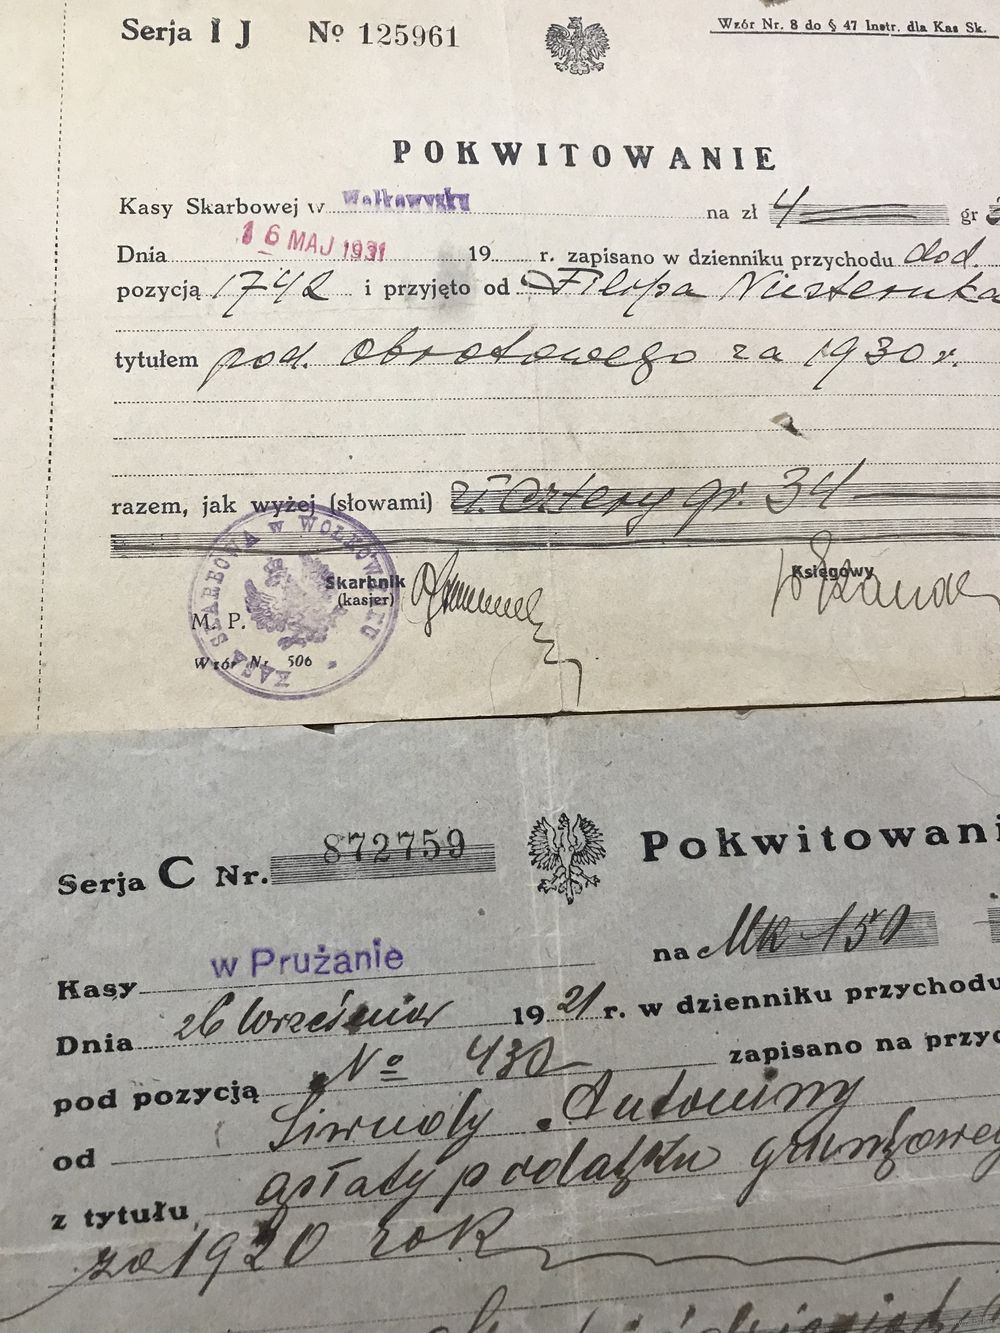 Serja I J № 125961
Wzór Nr. 8 do § 47 Instr. dla Kas Sk.
POKWITOWANIE
Kasy Skarbowej w Wołkowysku na zł 4 gr
Dnia 16 MAJ 1931 19 r. zapisano w dzienniku przychodu dod.
pozycją 1742 i przyjęto od Filipa Niesteruka
tytułem pod. obrotowego za 1930 r.
razem, jak wyżej (słowami) zł. cztery gr. 34
KASA SKARBOWA w WOŁKOWYSKU
Skarbnik
(kasjer)
Księgowy
M. P.
Wzór Nr. 506
Serja C Nr. 872759
Pokwitowani
Kasy w Prużanie na Mk 150
Dnia 26 Września 1921 r. w dzienniku przychodu
pod pozycją № 430 zapisano na przyc
od Antoniny
z tytułu opłaty podatku gruntoweg
za 1920 rok